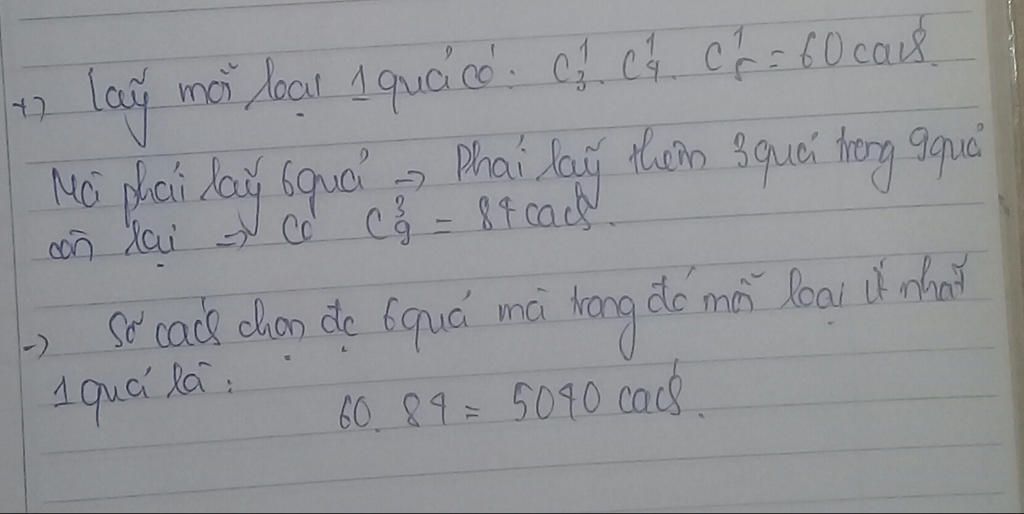 +) lấy mỗi loại 1 quả có: C₃¹. C₄¹. C₅¹ = 60 cách.
Mà phải lấy 6 quả → phải lấy thêm 3 quả trong 9 quả
còn lại → có C₉³ = 84 cách.
→) Số cách chọn đc 6 quả mà trong đó mỗi loại ít nhất
1 quả là:
60. 84 = 5040 cách.